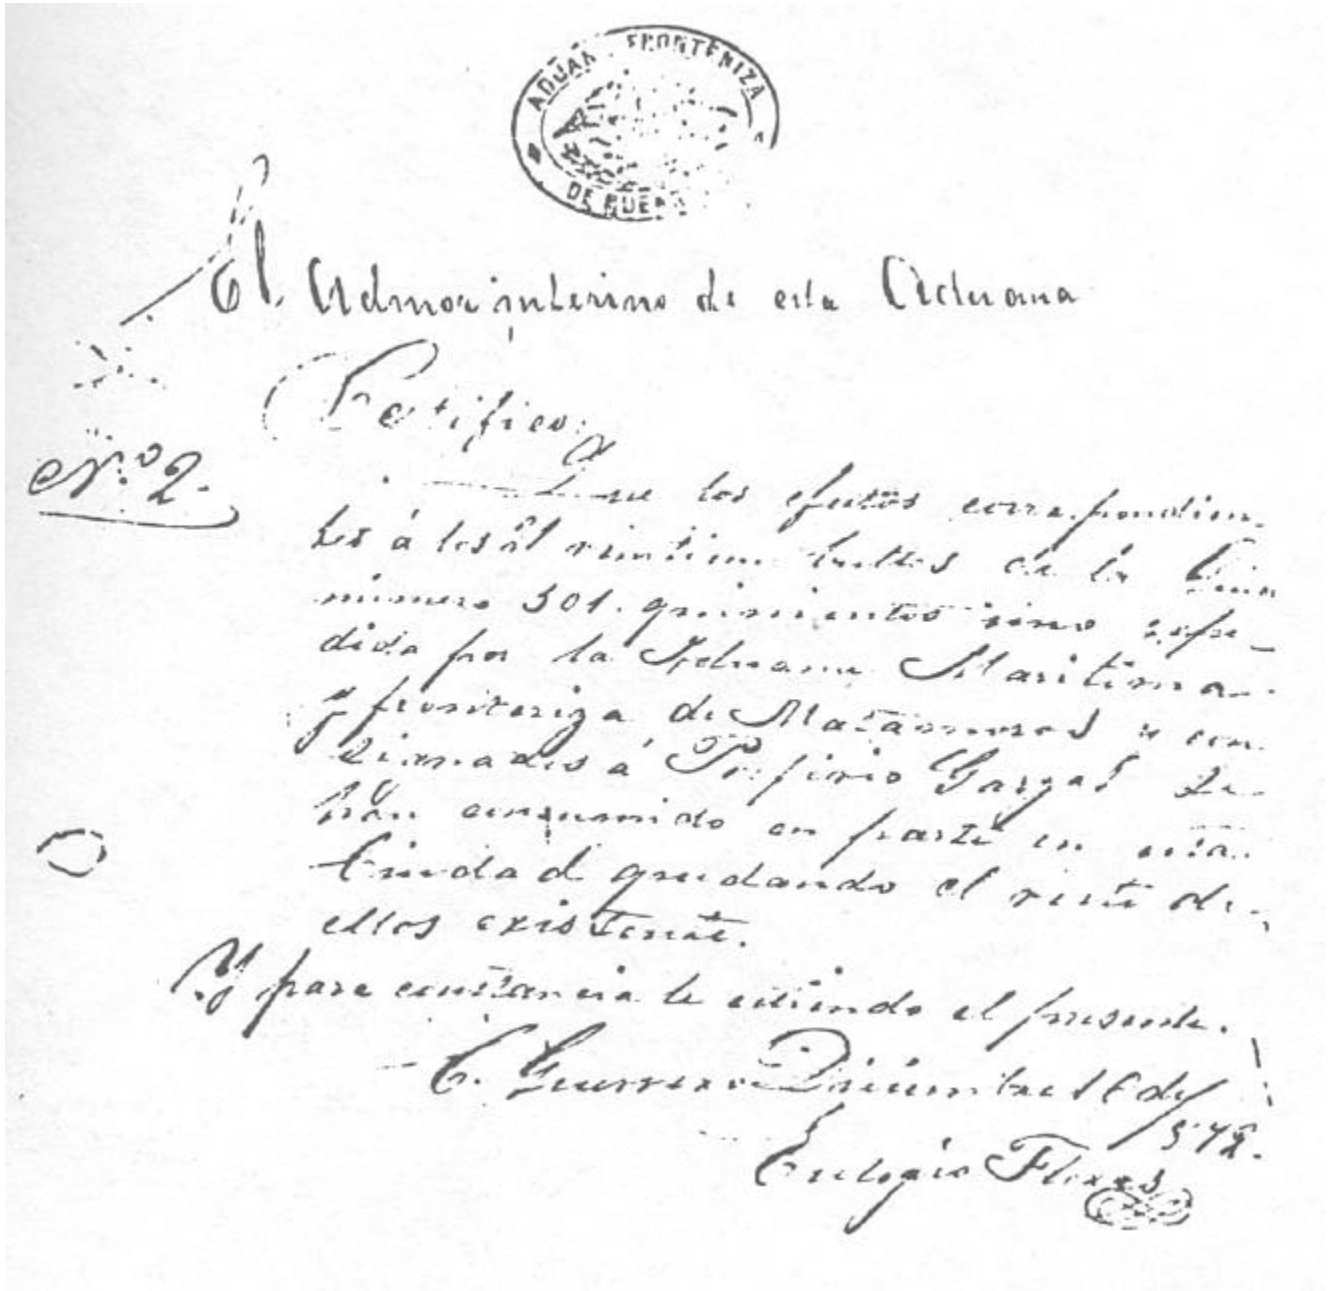 ADUANA FRONTERIZA
DE
El Admor interino de esta Aduana
Certifico:
Nº 2.
Que los efectos correspondien-
tes á los 21 veintiun bultos de la Guia
numero 501. quinientos uno espe-
dida por la Aduana Maritima
y fronteriza de Matamoros y con
signados á Porfirio Garza
han consumido en parte en esta
Ciudad quedando el resto de
ellos existente.
Y para constancia le estiendo el presente.
C. Guerrero Diciembre 16 de
Eulogio Flores